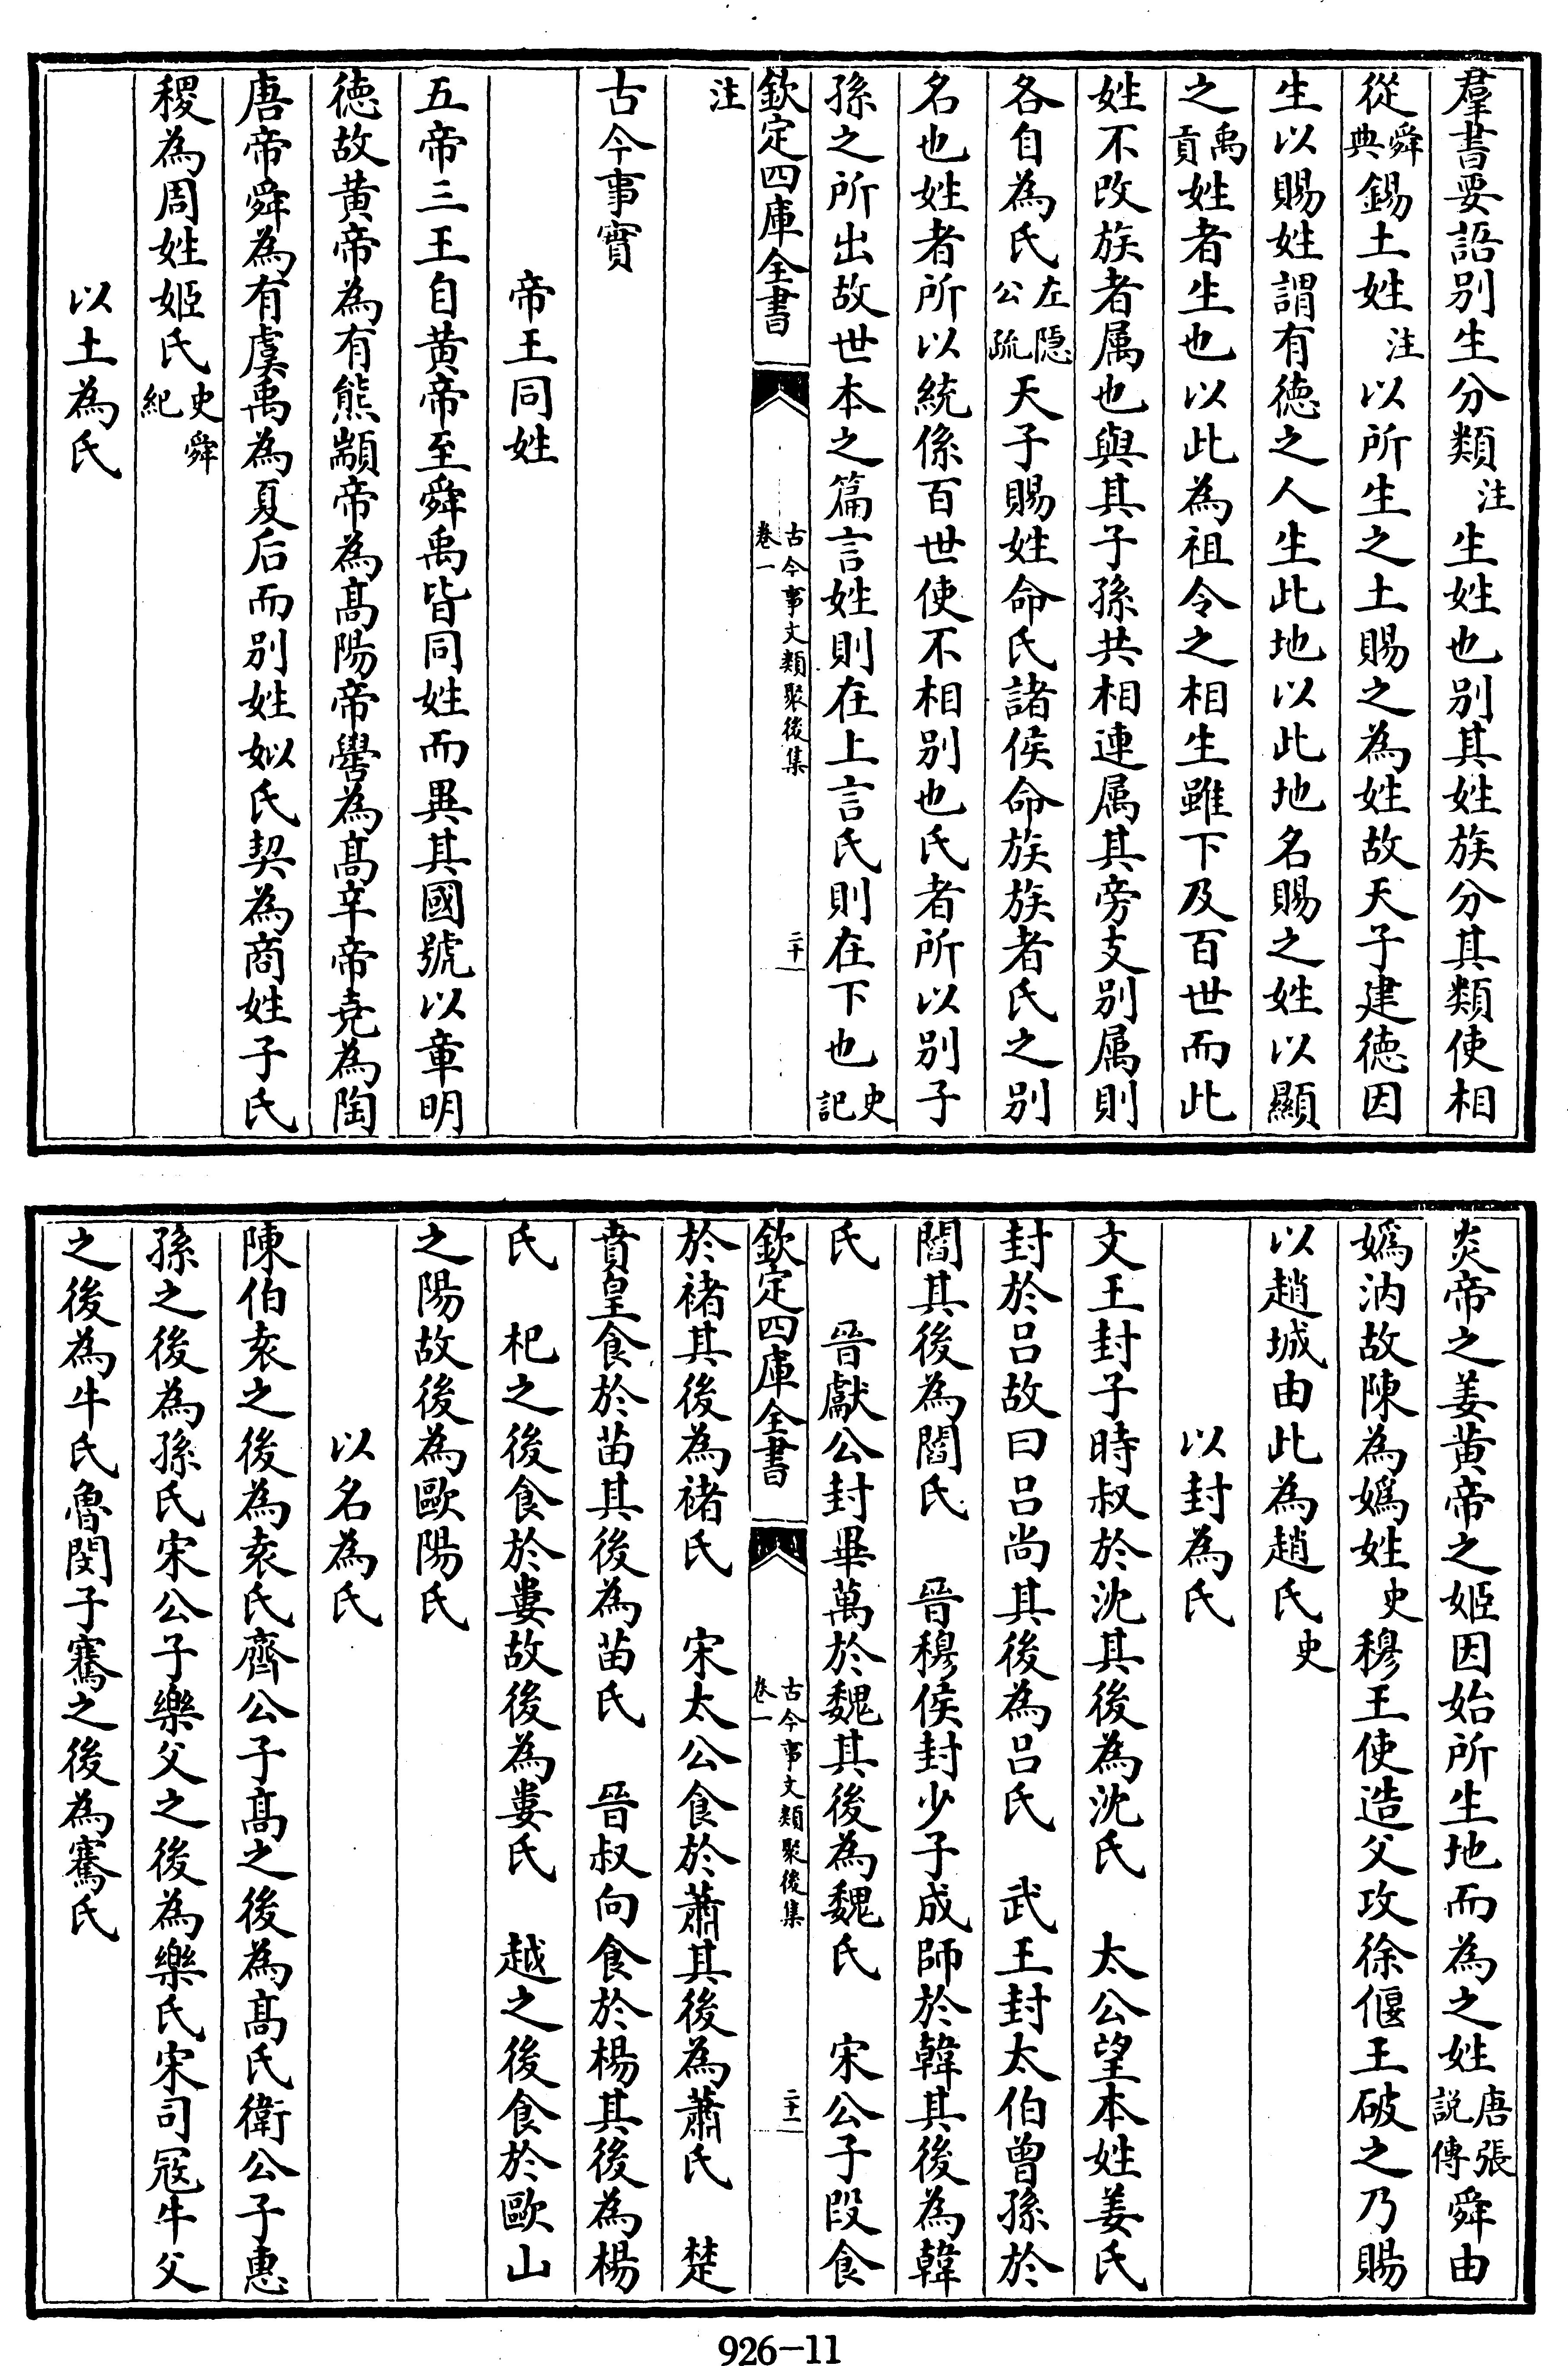 羣書要語别生分類注生姓也别其姓族分其類使相
從舜典錫土姓注以所生之土賜之為姓故天子建徳因
生以賜姓謂有徳之人生此地以此地名賜之姓以顯
之禹貢姓者生也以此為祖令之相生雖下及百世而此
姓不改族者属也與其子孫共相連属其旁支别属則
各自為氏左隠公疏天子賜姓命氏諸侯命族族者氏之别
名也姓者所以統係百世使不相别也氏者所以别子
孫之所出故世本之篇言姓則在上言氏則在下也史記
欽定四庫全書
古今事文類聚後集
卷一
二十
注
古今事實
帝王同姓
五帝三王自黄帝至舜禹皆同姓而異其國號以章明
徳故黄帝為有熊顓帝為髙陽帝嚳為髙辛帝堯為陶
唐帝舜為有虞禹為夏后而别姓姒氏契為商姓子氏
稷為周姓姬氏史舜紀
以土為氏
炎帝之姜黄帝之姬因始所生地而為之姓唐張説傳舜由
嬀汭故陳為嬀姓史穆王使造父攻徐偃王破之乃賜
以趙城由此為趙氏史
以封為氏
文王封子時叔於沈其後為沈氏　太公望本姓姜氏
封於吕故曰吕尚其後為吕氏　武王封太伯曾孫於
閻其後為閻氏　晉穆侯封少子成師於韓其後為韓
氏　晉獻公封畢萬於魏其後為魏氏　宋公子段食
欽定四庫全書
古今事文類聚後集
卷一
二十一
於褚其後為褚氏　宋太公食於蕭其後為蕭氏　楚
賁皇食於苗其後為苗氏　晉叔向食於楊其後為楊
氏　杞之後食於婁故後為婁氏　越之後食於歐山
之陽故後為歐陽氏
以名為氏
陳伯袁之後為袁氏齊公子髙之後為髙氏衛公子惠
孫之後為孫氏宋公子樂父之後為樂氏宋司冦牛父
之後為牛氏魯閔子騫之後為騫氏
926-11